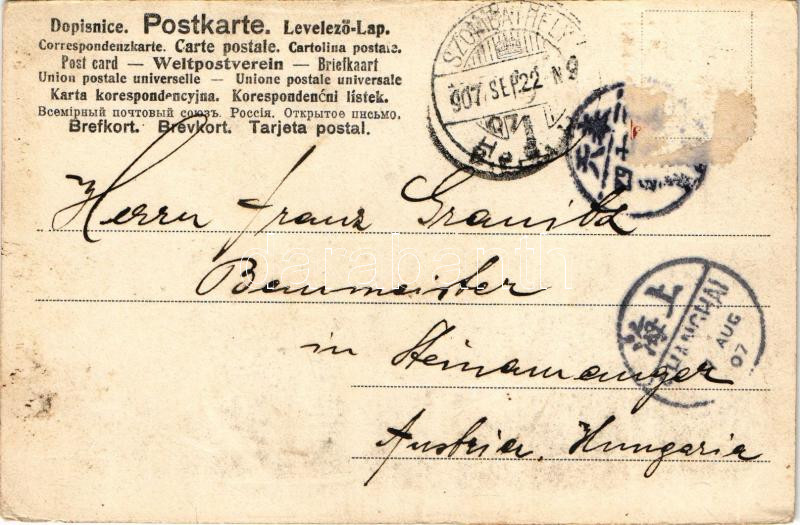 Dopisnice. Postkarte. Levelező-Lap.
Correspondenzkarte. Carte postale. Cartolina postale.
Post card — Weltpostverein — Briefkaart
Union postale universelle — Unione postale universale
Karta korespondencyjna. Korespondenční lístek.
Всемірный почтовый союзъ. Россія. Открытое письмо.
Brefkort. Brevkort. Tarjeta postal.
SZOMBATHELY
907 SEP. 22. N 9
Herrn Franz Granitz
Baumeister
in Steinamanger
Austria, Hungaria
上海
SHANGHAI
AUG
07
darabanth